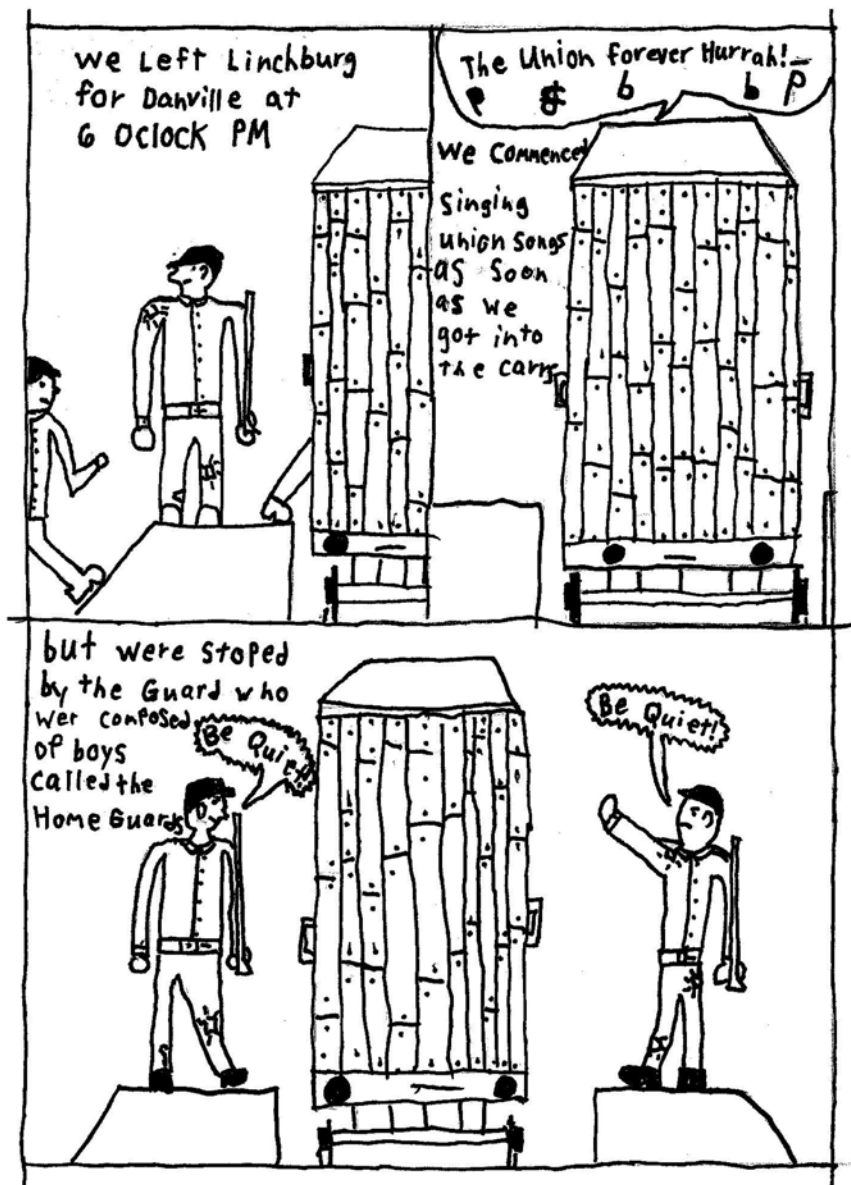 we Left Linchburg
for Danville at
6 Oclock PM
The Union forever Hurrah!
we commenced
Singing
union songs
as soon
as we
got into
the carrs
but were stoped
by the Guard who
wer composed
of boys
called the
Home Guards
Be Quiet!
Be Quiet!